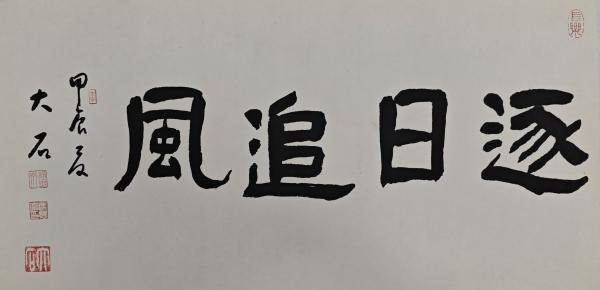 逐日追風
甲辰夏
大石